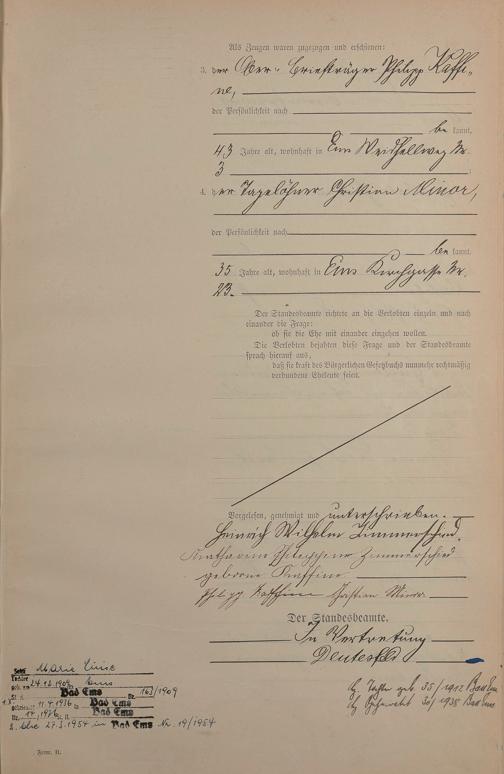 Als Zeugen waren zugezogen und erschienen:
3. der Ober-Briefträger Philipp Kaffi-
ne,
der Persönlichkeit nach
be kannt,
43 Jahre alt, wohnhaft in Ems Nr.
3
4. der Tagelöhner Christian Minor,
der Persönlichkeit nach
be kannt,
35 Jahre alt, wohnhaft in Ems Kirchgasse Nr.
23.
Der Standesbeamte richtete an die Verlobten einzeln und nach
einander die Frage:
ob sie die Ehe mit einander eingehen wollen.
Die Verlobten bejahten diese Frage und der Standesbeamte
sprach hierauf aus,
daß sie kraft des Bürgerlichen Gesetzbuchs nunmehr rechtmäßig
verbundene Eheleute seien.
Vorgelesen, genehmigt und unterschrieben.
Heinrich Wilhelm Zimmerschied.
Katharine Philippine Zimmerschied
geborene Kaffine
Philipp Kaffine Christian Minor
Der Standesbeamte.
In Vertretung
Marie Luise
Tochter
geb. am 24.12.1909 Ems
Bad Ems Nr. 163/1909
Bad Ems
Bad Ems
2. Ehe 27.3.1954 in Bad Ems Nr. 19/1954
geb. 35/1912 Bad Ems
30/1938 Bad Ems
Form. B.